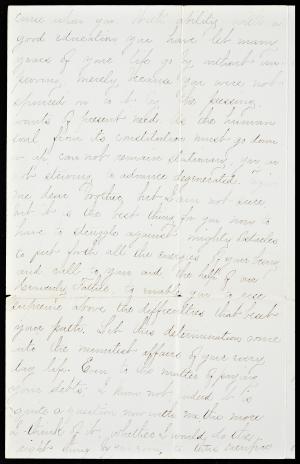 came upon you. With ability, with a
good education you have let many
years of your life go by without im-
proving merely because you were not
spurred on to it by the pressing
wants of present need. As the human
soul from its constitution must go down
or it can not remain stationary, you in
not striving to advance degenerated.
me dear brother, but I am not sure
but it is the best thing for you now to
have to struggle against mighty obstacles
to put forth all the energies of your being
and call to your aid the help of our
Heavenly Father, to enable you to rise
supreme above the difficulties that beset
your path. Let this determination come
into the minutest affairs of your every
day life. Even to the matter of paying
your debts. I know not indeed it is
quite a question now with me the more
I think of it, whether I would do the
right thing